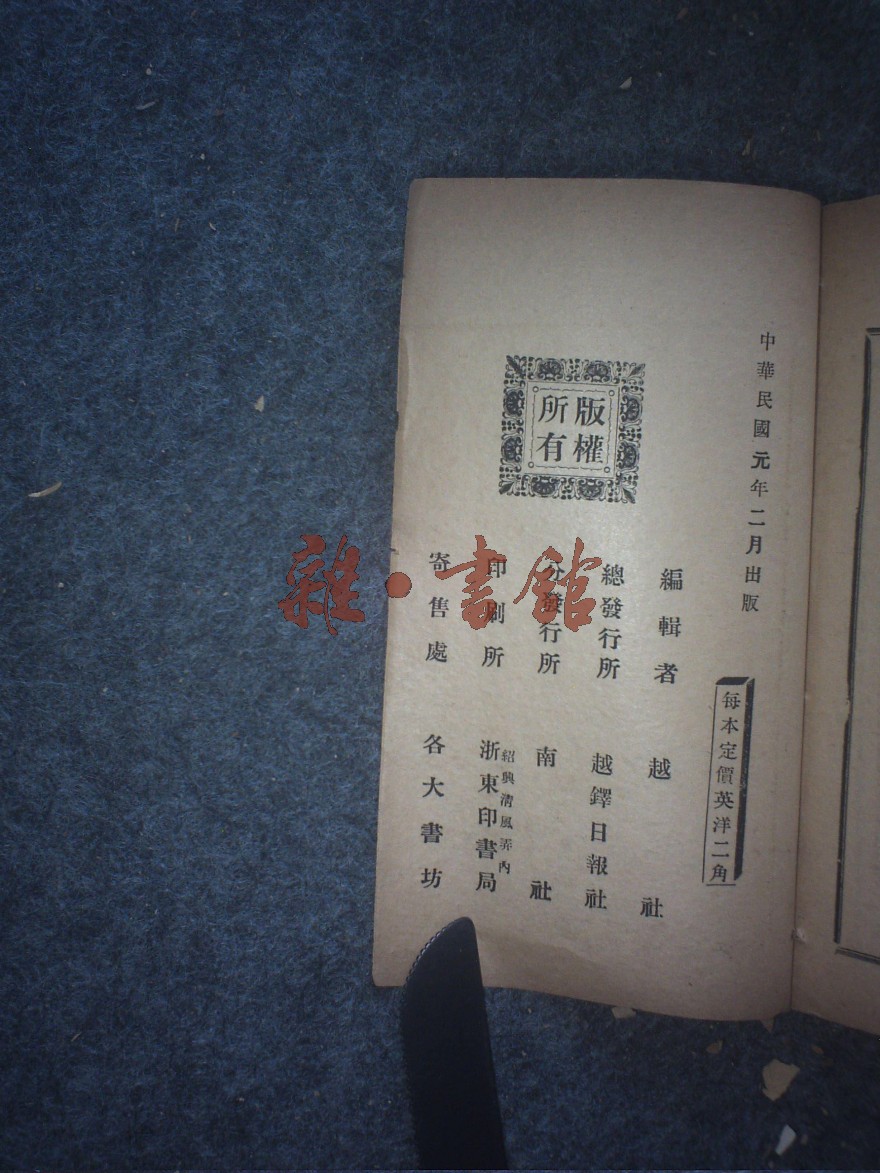 中華民國元年二月出版
每本定價英洋二角
編輯者 越社
總發行所 越鐸日報社
分發行所 南社
印刷所 紹興清風弄內 浙東印書局
寄售處 各大書坊
版權
所有
雜·書館